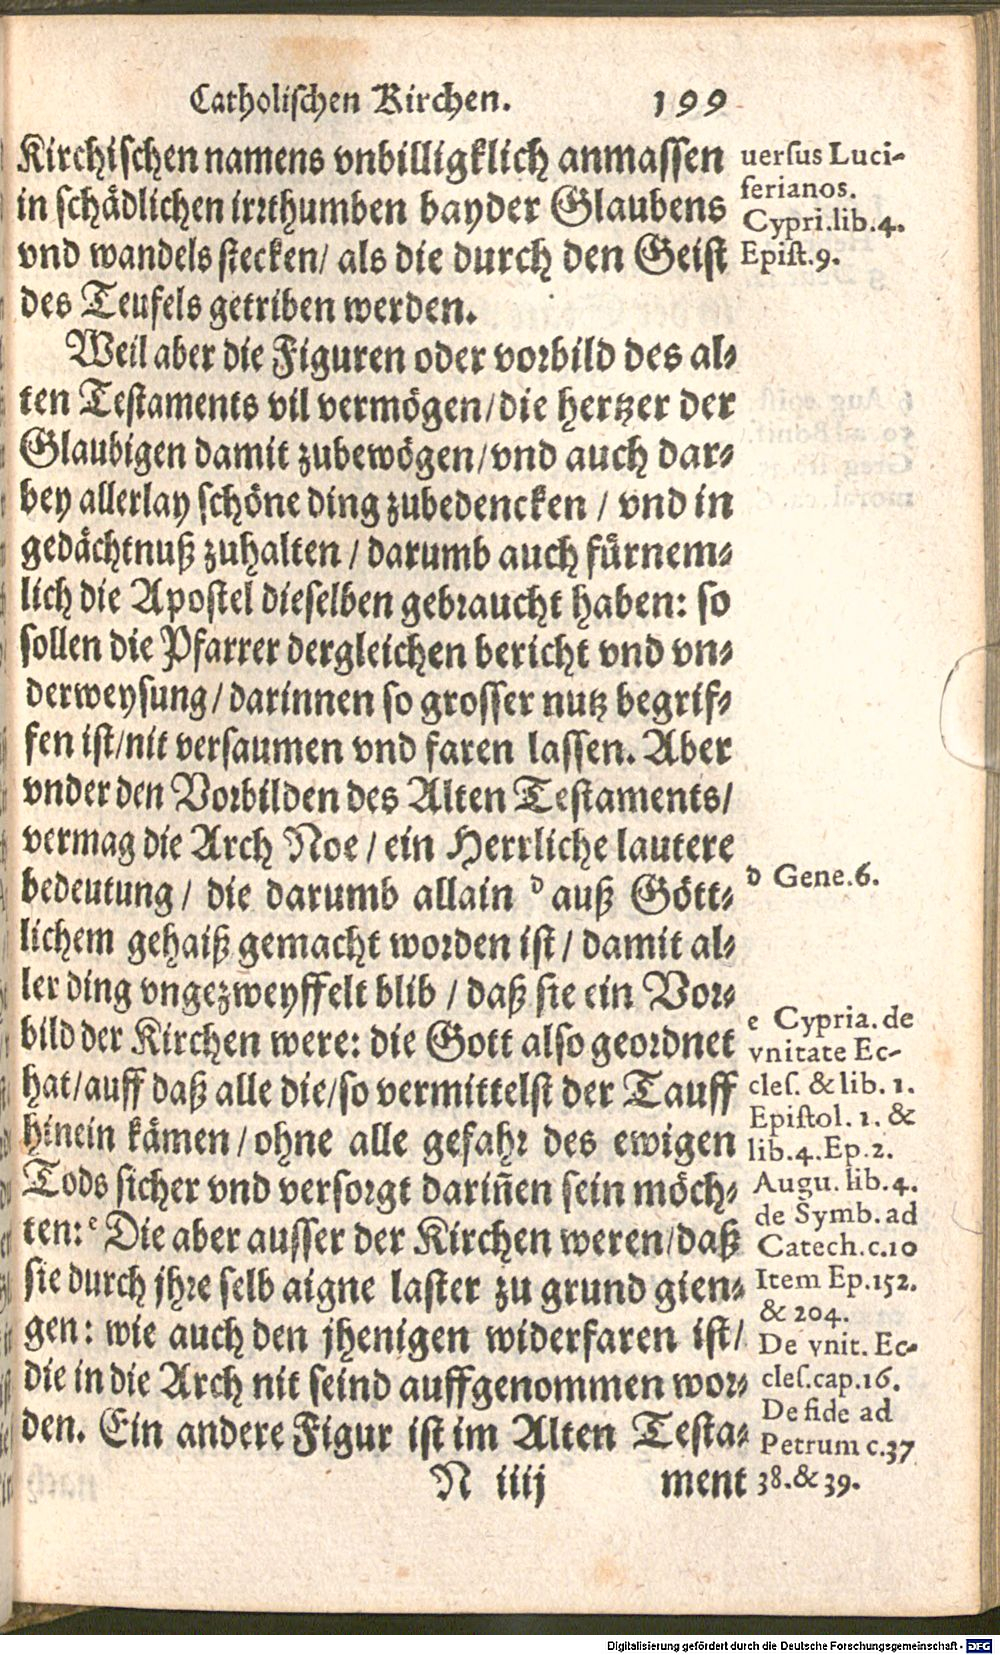 Catholischen Kirchen. 199
Kirchischen namens vnbilligklich anmassen
in schädlichen irrthumben bayder Glaubens
vnd wandels stecken/ als die durch den Geist
des Teufels getriben werden.
Weil aber die Figuren oder vorbild des al-
ten Testaments vil vermögen/die hertzer der
Glaubigen damit zubewögen/vnd auch dar-
bey allerlay schöne ding zubedencken / vnd in
gedächtnuß zuhalten / darumb auch fürnem-
lich die Apostel dieselben gebraucht haben: so
sollen die Pfarrer dergleichen bericht vnd vn-
derweysung/darinnen so grosser nutz begrif-
fen ist/nit versaumen vnd faren lassen. Aber
vnder den Vorbilden des Alten Testaments/
vermag die Arch Noe / ein Herrliche lautere
bedeutung/ die darumb allain d auß Gött-
lichem gehaiß gemacht worden ist / damit al-
ler ding vngezweyffelt blib / daß sie ein Vor-
bild der Kirchen were: die Gott also geordnet
hat/auff daß alle die/so vermittelst der Tauff
hinein kämen/ohne alle gefahr des ewigen
Tods sicher vnd versorgt dariñen sein möch-
ten: e Die aber ausser der Kirchen weren/daß
sie durch jhre selb aigne laster zu grund gien-
gen: wie auch den jhenigen widerfaren ist/
die in die Arch nit seind auffgenommen wor-
den. Ein andere Figur ist im Alten Testa-
N iiij ment
uersus Luci-
ferianos.
Cypri.lib.4.
Epist.9.
d Gene.6.
e Cypria.de
vnitate Ec-
cles. & lib. 1.
Epistol. 1. &
lib.4.Ep.2.
Augu. lib.4.
de Symb. ad
Catech.c.10
Item Ep.152.
& 204.
De vnit. Ec-
cles.cap.16.
De fide ad
Petrum c.37
38.& 39.
Digitalisierung gefördert durch die Deutsche Forschungsgemeinschaft - DFG